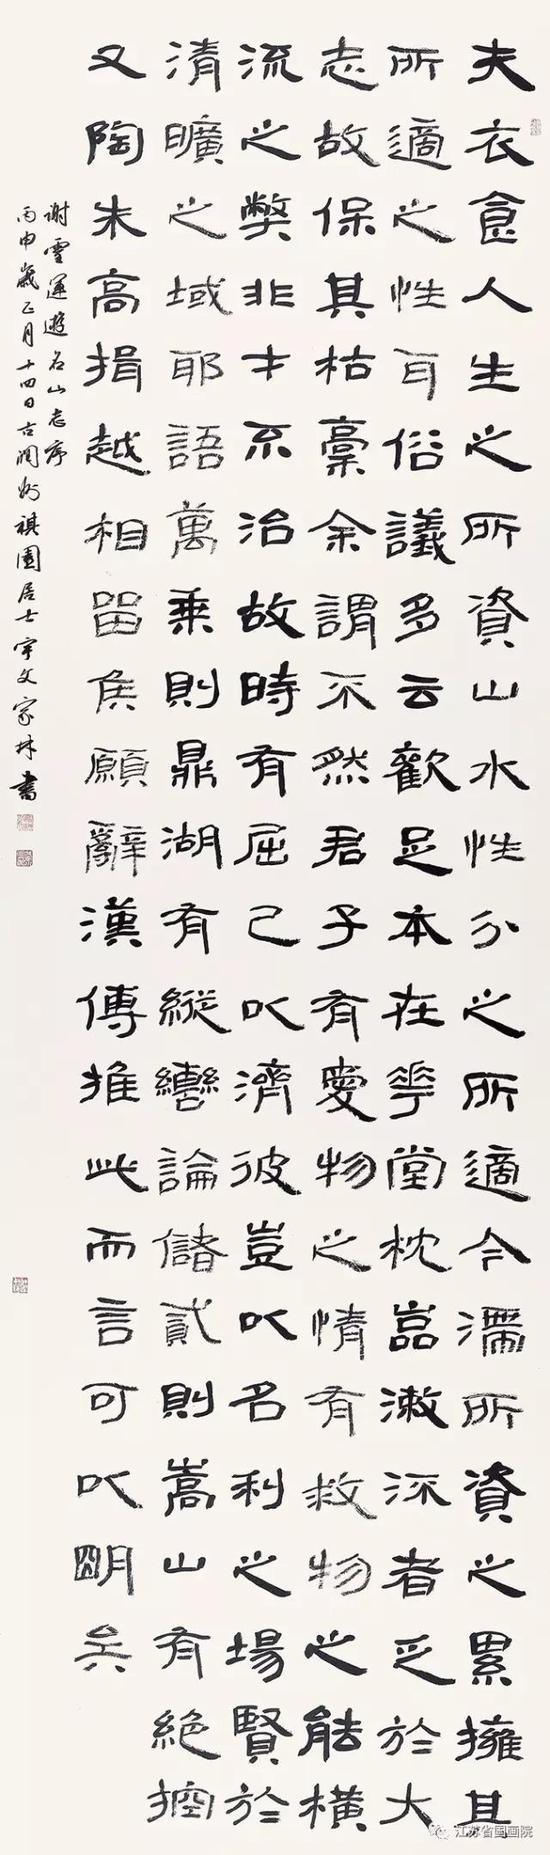 夫衣食人生之所資山水性分之所適今濡所資之累擁其
所適之性耳俗議多云歡足本在華堂枕嵓漱流者乏於大
志故保其枯槀余謂不然君子有愛物之情有救物之能橫
流之弊非才不治故時有屈己以濟彼豈以名利之場賢於
清曠之域耶語萬乘則鼎湖有縱轡論儲貳則嵩山有絕控
又陶朱高揖越相留侯願辭漢傅推此而言可以明矣
谢靈運遊名山志序
丙申歲正月十四日古潤州祺園居士宇文家林書
江苏省国画院